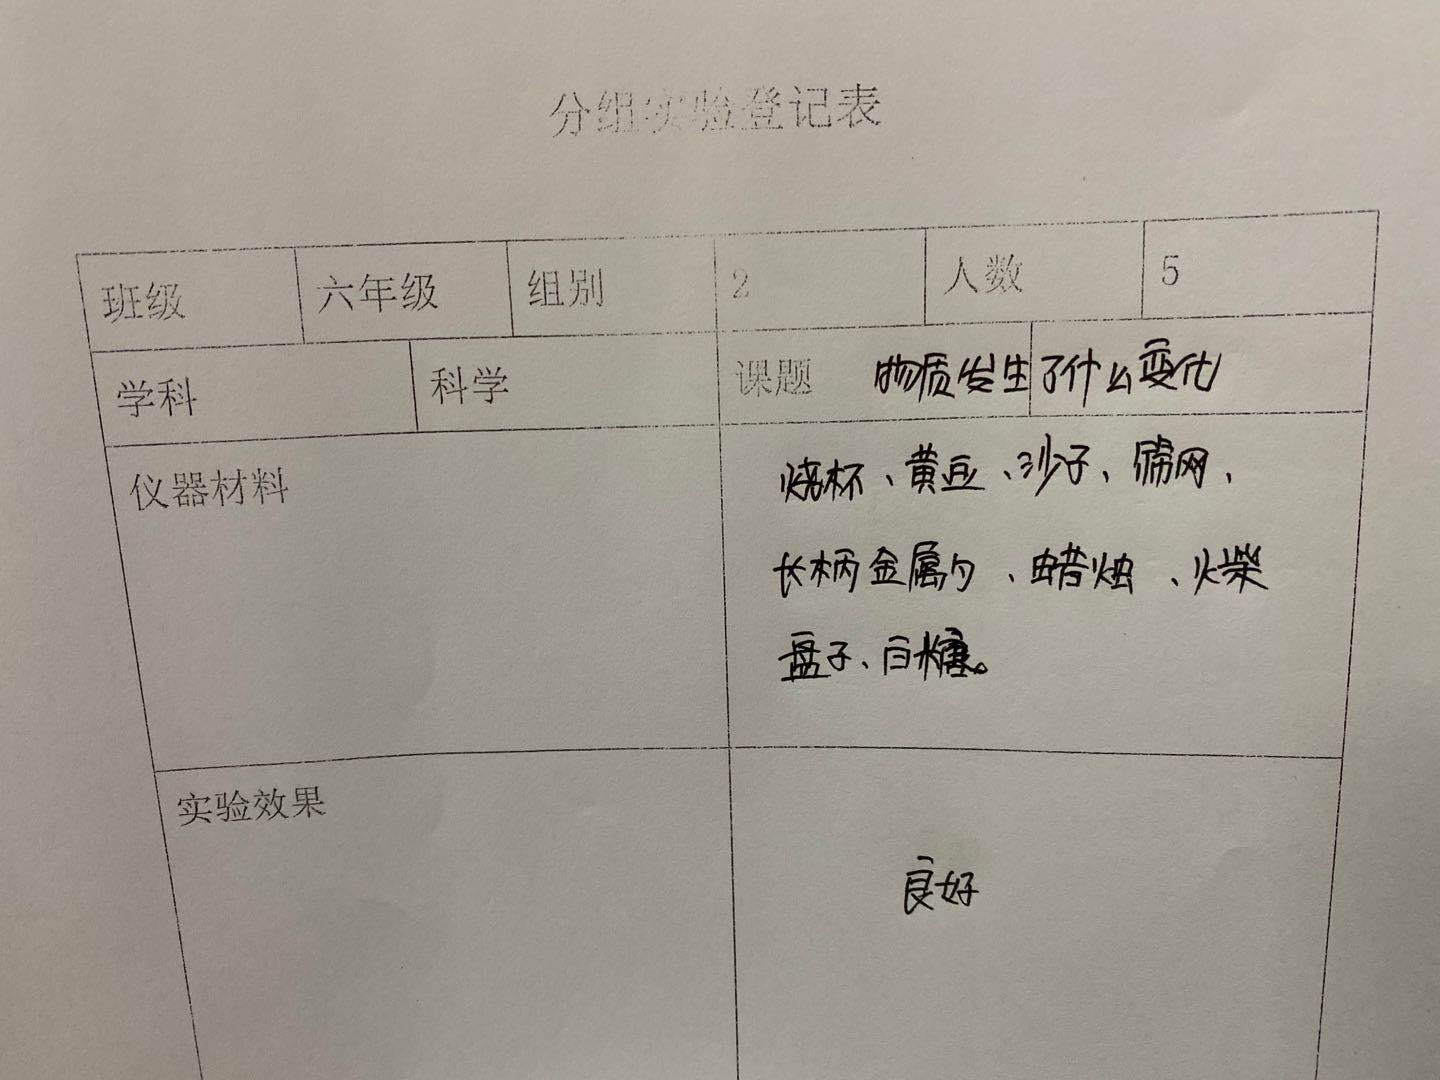 分组实验登记表
班级 六年级 组别 2 人数 5
学科 科学 课题 物质发生了什么变化
仪器材料 烧杯、黄豆、沙子、筛网、
长柄金属勺、蜡烛、火柴
盘子、白糖。
实验效果
良好